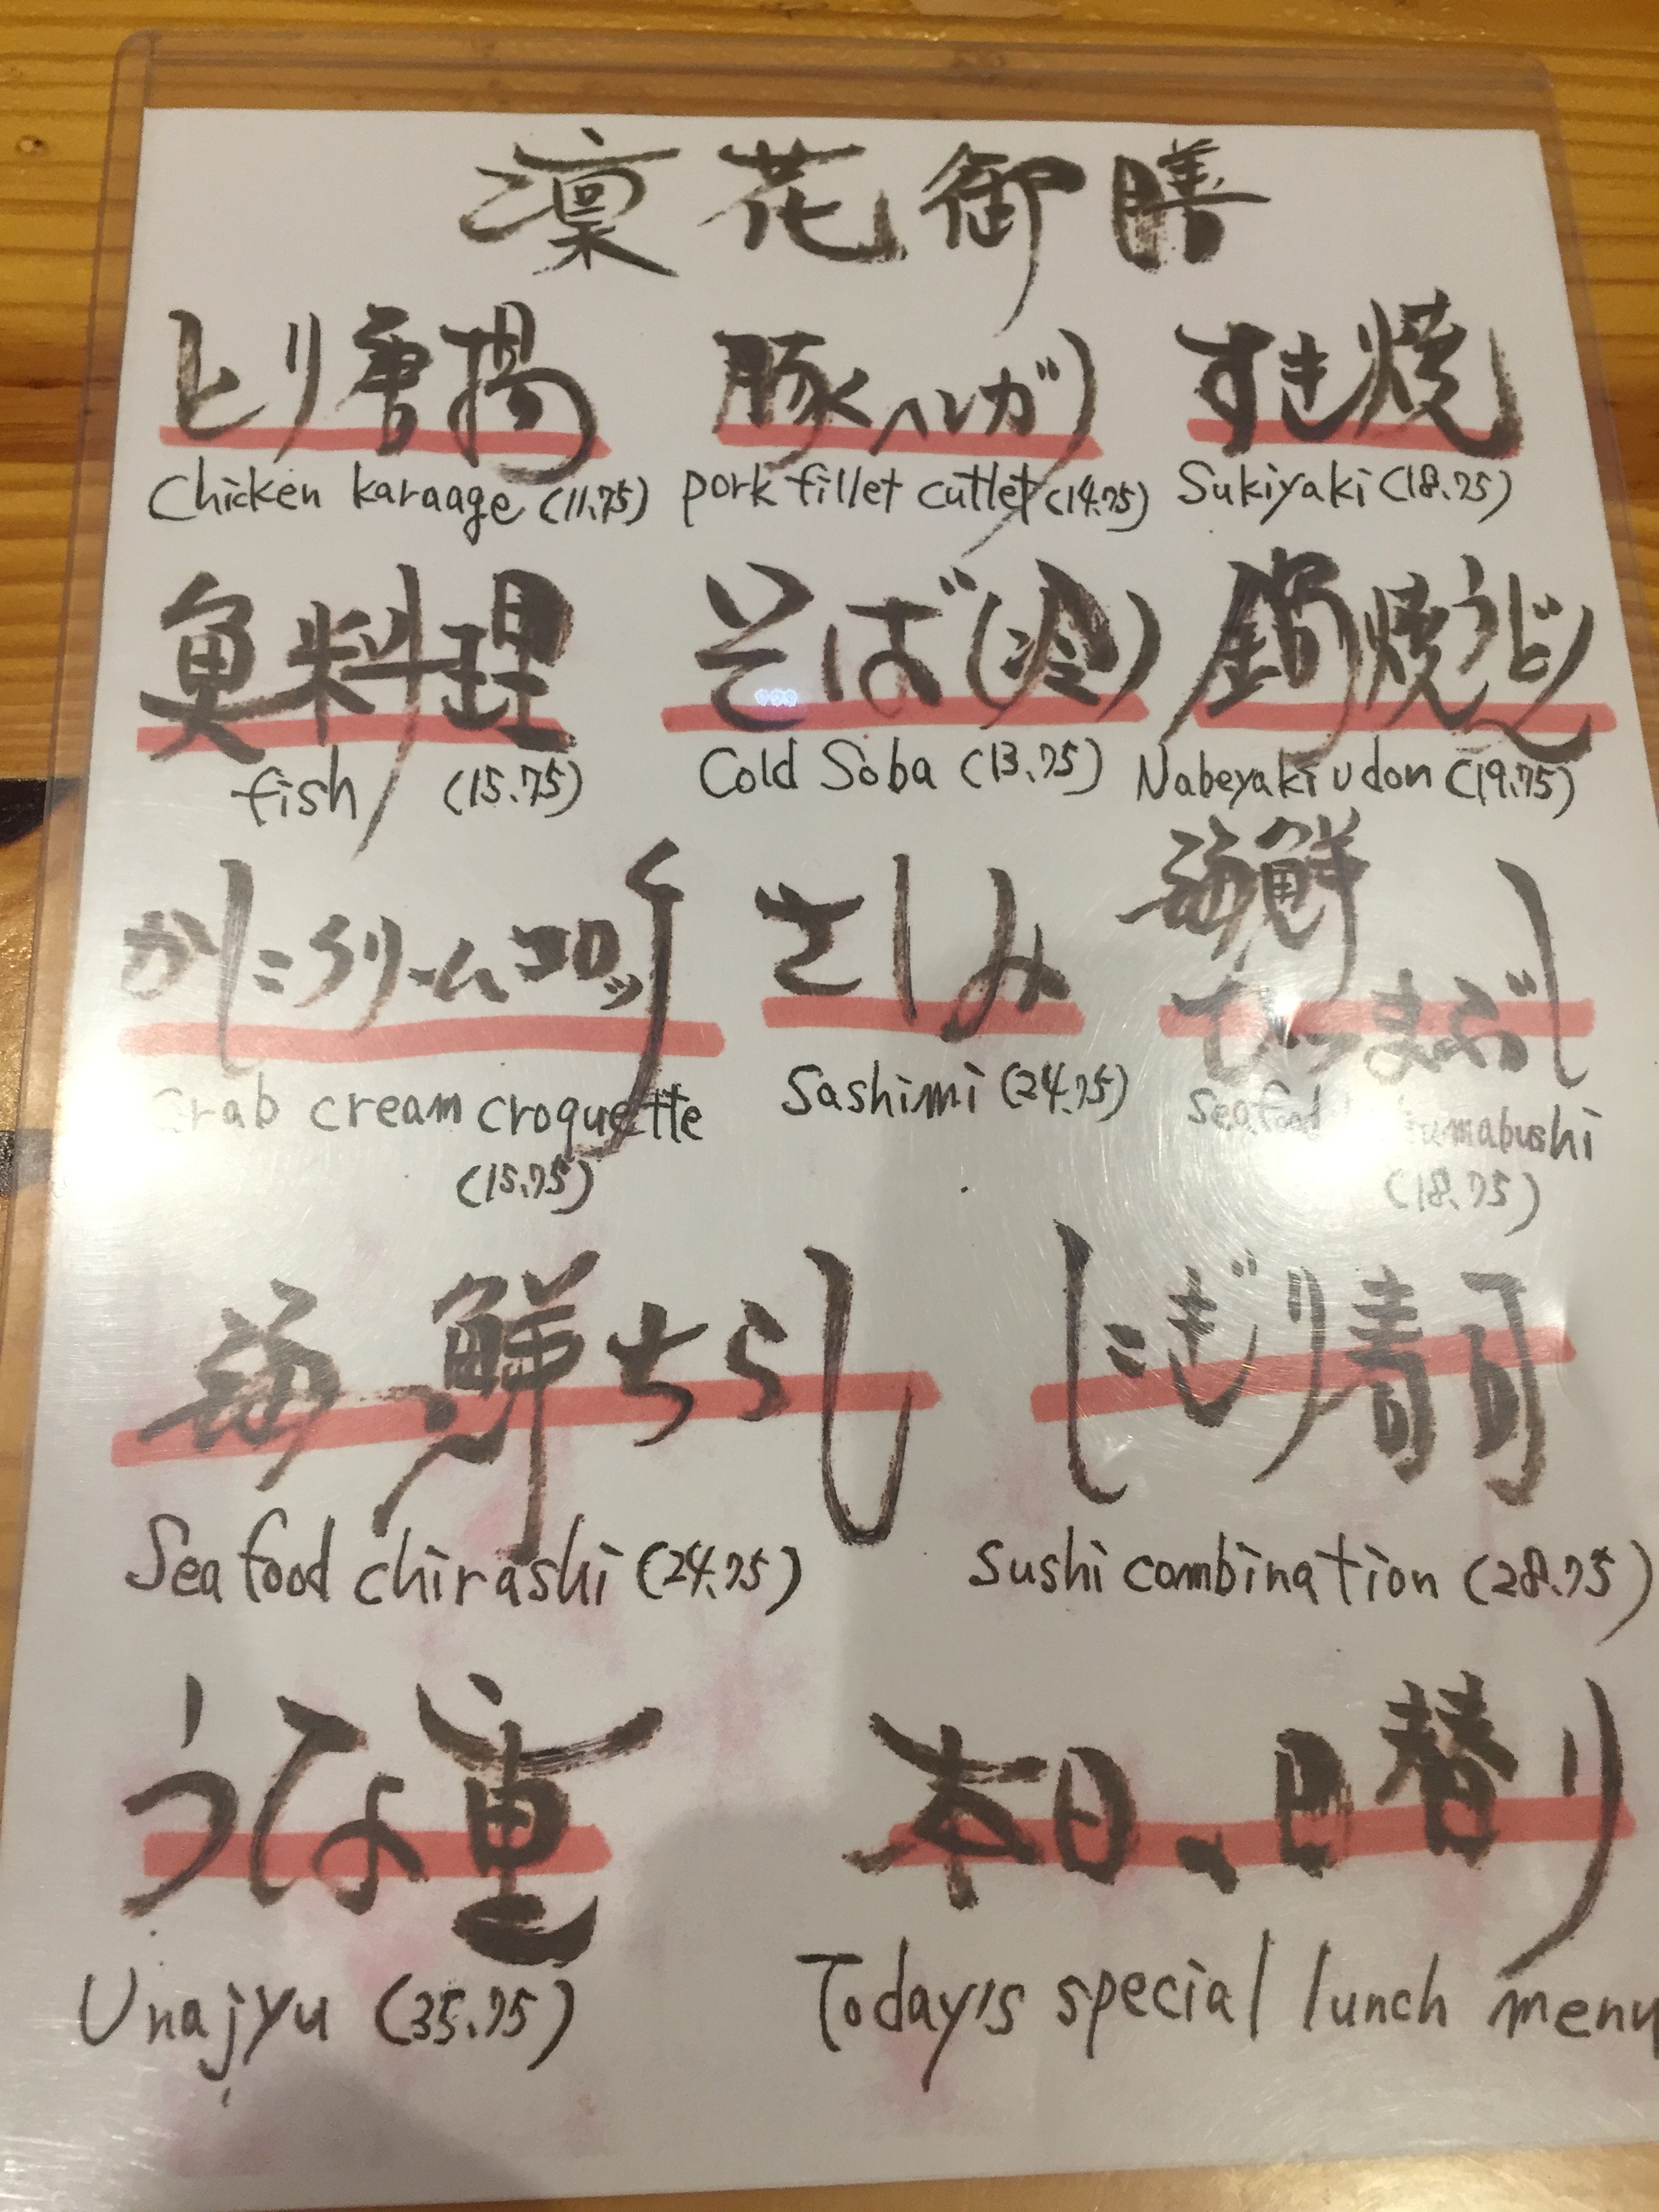 凛花御膳
とり唐揚 豚ヘレカツ すき焼
Chicken karaage (11.75) pork fillet cutlet (14.75) Sukiyaki (18.75)
魚料理 そば(冷) 鍋焼うどん
fish (15.75) Cold Soba (13.75) Nabeyaki udon (19.75)
かにクリームコロッケ さしみ 海鮮
ひつまぶし
Crab cream croquette Sashimi (24.75) Seafood
(15.75) (18.75)
海鮮ちらし にぎり寿司
Seafood chirashi (24.75) Sushi combination (28.75)
うな重 本日、日替り
Unajyu (35.75) Today's special lunch menu